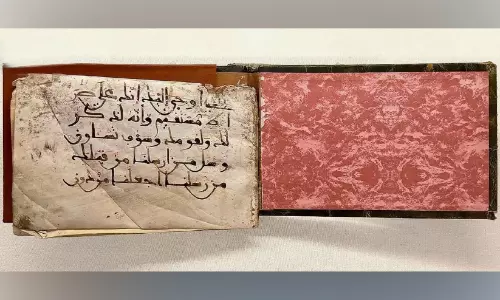 بالذي اوحي اليك انك على صر
اط مستقيم وانه لذكر
لك ولقومك وسوف تسلون
وسل من ارسلنا من قبلك
من رسلنا اجعلنا من دون